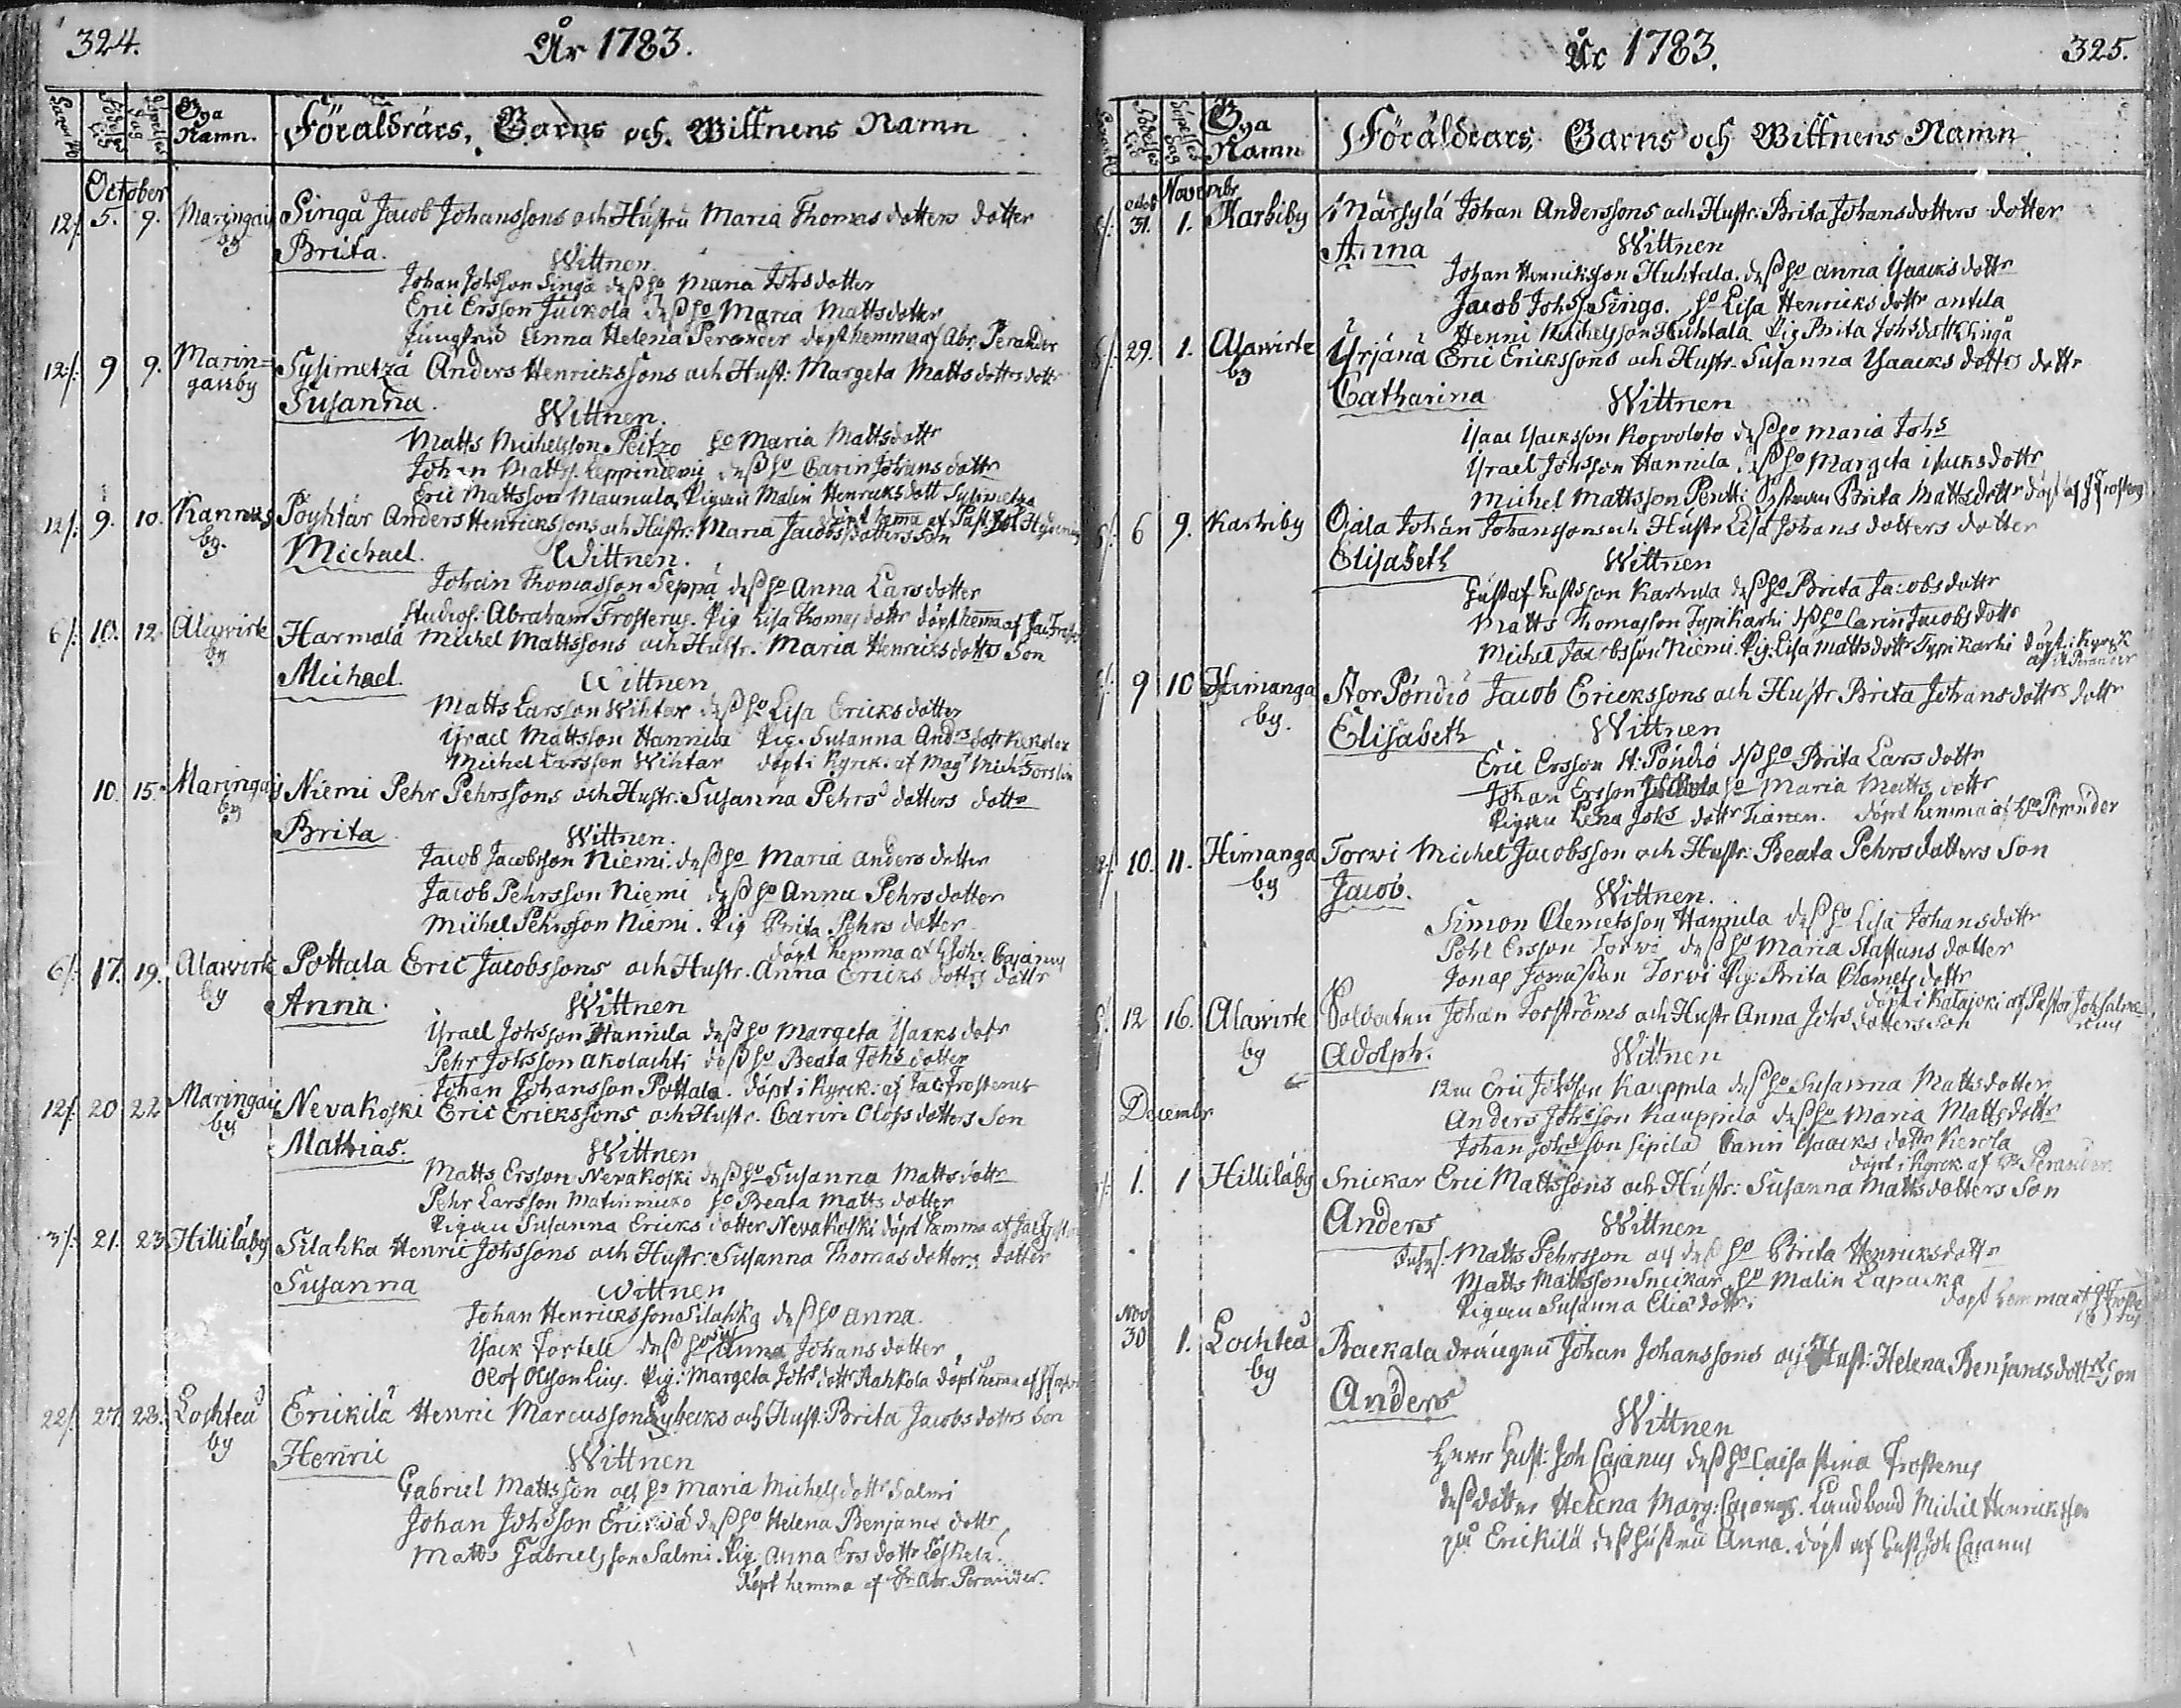 324.
År 1783.
Födelse Tid
Döpelse Dag
Bya Namn.
Föräldrars, Barns och Wittnens Namn
October
12/. 5. 9. Maringais by Singå Jacob Johanssons och Hustru Maria Thomas dotters dotter
Brita.
Wittnen
Johan Johsson Singå dess ho Maria Johsdotter
Eric Ersson Juckola dess ho Maria Mattsdotter
Jungfrud Anna Helena Perander döpt hemma af Abr. Perander
12/. 9 9. Marin= gais by Sysimetzä Anders Henrickssons och Hust: Margeta Matts dotters dottr
Susanna.
Wittnen.
Matts Michelsson Peitzo ho Maria Mattsdottr
Johan Mattss. Leppiniemi dess ho Carin Johans dottr
Eric Mattsson Maunula, Pigan Malin Henricksdott Sysimetzä
12/. 9. 10. Kannus by. Pöyhtär Anders Henrickssons och Hustr: Maria Jacobs dotters Son
Michael.
Wittnen.
Johan Thomasson Seppä dess ho Anna Larsdotter
Studios: Abraham Frosterus. Pig Lisa Thomas dottr döpt hema af Jac Froster
6/. 10. 12 Alawirte by Harmala Michel Mattssons och Hustr. Maria Henricksdottrs Son
Michael.
Wittnen
Matts Larsson Wihtar dess ho Lisa Ericksdotter
Israel Mattsson Hannila Pig. Susanna Andrs dottr Kekolax
Michel Larsson Wihtar döpt i Kyrck. af Magr Mich Forslin
10. 15. Maringais by Niemi Pehr Pehrssons och Hustr: Susanna Pehrs dotters dottr
Brita
Wittnen.
Jacob Jacobsson Niemi. dess ho Maria Anders dotter
Jacob Pehrsson Niemi dess ho Anna Pehrsdotter
Michel Pehrsson Niemi. Pig Brita Pehrs dotter
döpt hemma af GJoh. Cajanus
6/. 17. 19. Alawirte by Pottala Eric Jacobssons och Hustr. Anna Ericks dottrs dottr
Anna.
Wittnen
Israel Johsson Hannila dess ho Margeta Isacks dotr
Pehr Johsson Akolachti dess ho Beata Johs dotter
Johan Johansson Pottala. döpt i Kyrck: af Jac: Frosterus
12/. 20 22 Maringais by Nevakoski Eric Erickssons och Hustr. Carin Olofs dotters Son
Mathias.
Wittnen
Matts Ersson Nevakoski dess ho Susanna Mattsdottr
Pehr Larsson ho Beata Matts dotter
Pigan Susanna Ericks dotter Nevakoski döpt hemma af Jac
3/. 21. 23 Hilliläby Silahka Henric Johssons och Hustr: Susanna Thomas dotters dotter
Susanna
Wittnen
Johan Henricksson Silahka dess ho Anna.
Isack Tortell dess ho Anna Johansdotter
Olof Olsson Pig: Margeta Johs dottr Rahkola döpt hema af
22/. 27. 28. Lochteå by Erickilä Henric Marcusson Lybecks och Hust: Brita Jacobs dottrs Son
Henric
Wittnen
Gabriel Mattsson och ho Maria Michels dottr Salmi
Johan Johsson Erickilä dess ho Helena Benjams dottr
Matts Gabrielsson Salmi. Pig Anna Ers dottr
Döpt hemma af Hr Abr. Perander.
År 1783.
325.
Födelse Tid
Döpelse Dag
Bya Namn
Föräldrars, Barns och Wittnens Namn
Octob Novembr
31. 1. Karhiby Märsylä Johan Anderssons och Hustr. Brita Johansdotters dotter
Anna
Wittnen
Johan Henriksson Huhtala. dess ho Anna Isaacksdottr
Jacob Johss. Singo. ho Lisa Henricks dottr Antila
Henric Michelsson Huhtala Pig Brita Johsdottr Singå
29. 1. Alawirte by Yrjänä Eric Erickssons och Hustr. Susanna Isaacks dottrs dottr
Catharina
Wittnen
Isaac Isacksson Korvoloto dess ho Maria Johs
Israel Johsson Hannila, dess ho Margeta Isacksdottr
Michel Mattsson Pentti Pigan Brita Mattsdottr
6 9. Karhiby Ojala Johan Johanssons och Hustr Lisa Johansdotters dotter
Elisabeth
Wittnen
Gustaf Gustsson Karhula dess ho Brita Jacobsdottr
Matts Thomasson Typikarhi dess ho Carin Jacobs dottr
Michel Jacobsson Niemi Pig: Lisa Mattsdottr Typi Karhi döpt i Kyrck af A Perander
9 10 Himanga by. Stor Pöndiö Jacob Erickssons och Hustr Brita Johansdottrs dottr
Elisabeth
Wittnen
Eric Ersson St: Pöndiö dess ho Brita Larsdottr
Johan Ersson ho Maria Matts dottr
Pigan Lena Johs dottr döpt hemma af Perander
10. 11. Himanga by Torwi Michel Jacobsson och Hustr: Beata Pehrsdotters Son
Jacob.
Wittnen.
Simon Clemetsson Hannila dess ho Lisa Johansdottr
Pohl Ersson Torwi dess ho Maria Staffans dotter
Jonas Jonasson Torwi Pig: Brita Clemets dottr
döpt i Kalajoki af Pastor Joh Salvenius
12 16. Alawirte by Soldaten Johan Forströms och Hustr Anna Johs dotters Son
Adolph.
Wittnen
Eric Johsson Kauppila dess ho Susanna Mattsdotter
Anders Johsson Kauppila dess ho Maria Matts dottr
Johan Johsson Sipilä Carin Isaacks dottr Kierola
döpt i Kyrck. af Hr Perander.
Decembr
1. 1 Hilliläby Snickar Eric Mattssons och Hustr: Susanna Mattsdotters Son
Anders
Wittnen
Matts Pehrsson och dess ho Brita Henricksdottr
Matts Mattsson Snickar ho Malin Lapacka
Pigan Susanna Eliæ dottr.
döpt hemma af
Nov 30 1. Lochteå by Backala drängen Johan Johanssons och Hust: Helena Benjamsdottrs Son
Anders
Wittnen
Herr Gust: Joh Cajanus dess ho Caisa Stina Frosterus
dess dotter Helena Marg: Cajanus. Landbond Michel Henricksson
på Erickilä dess hustru Anna. döpt af Gust Joh Cajanus